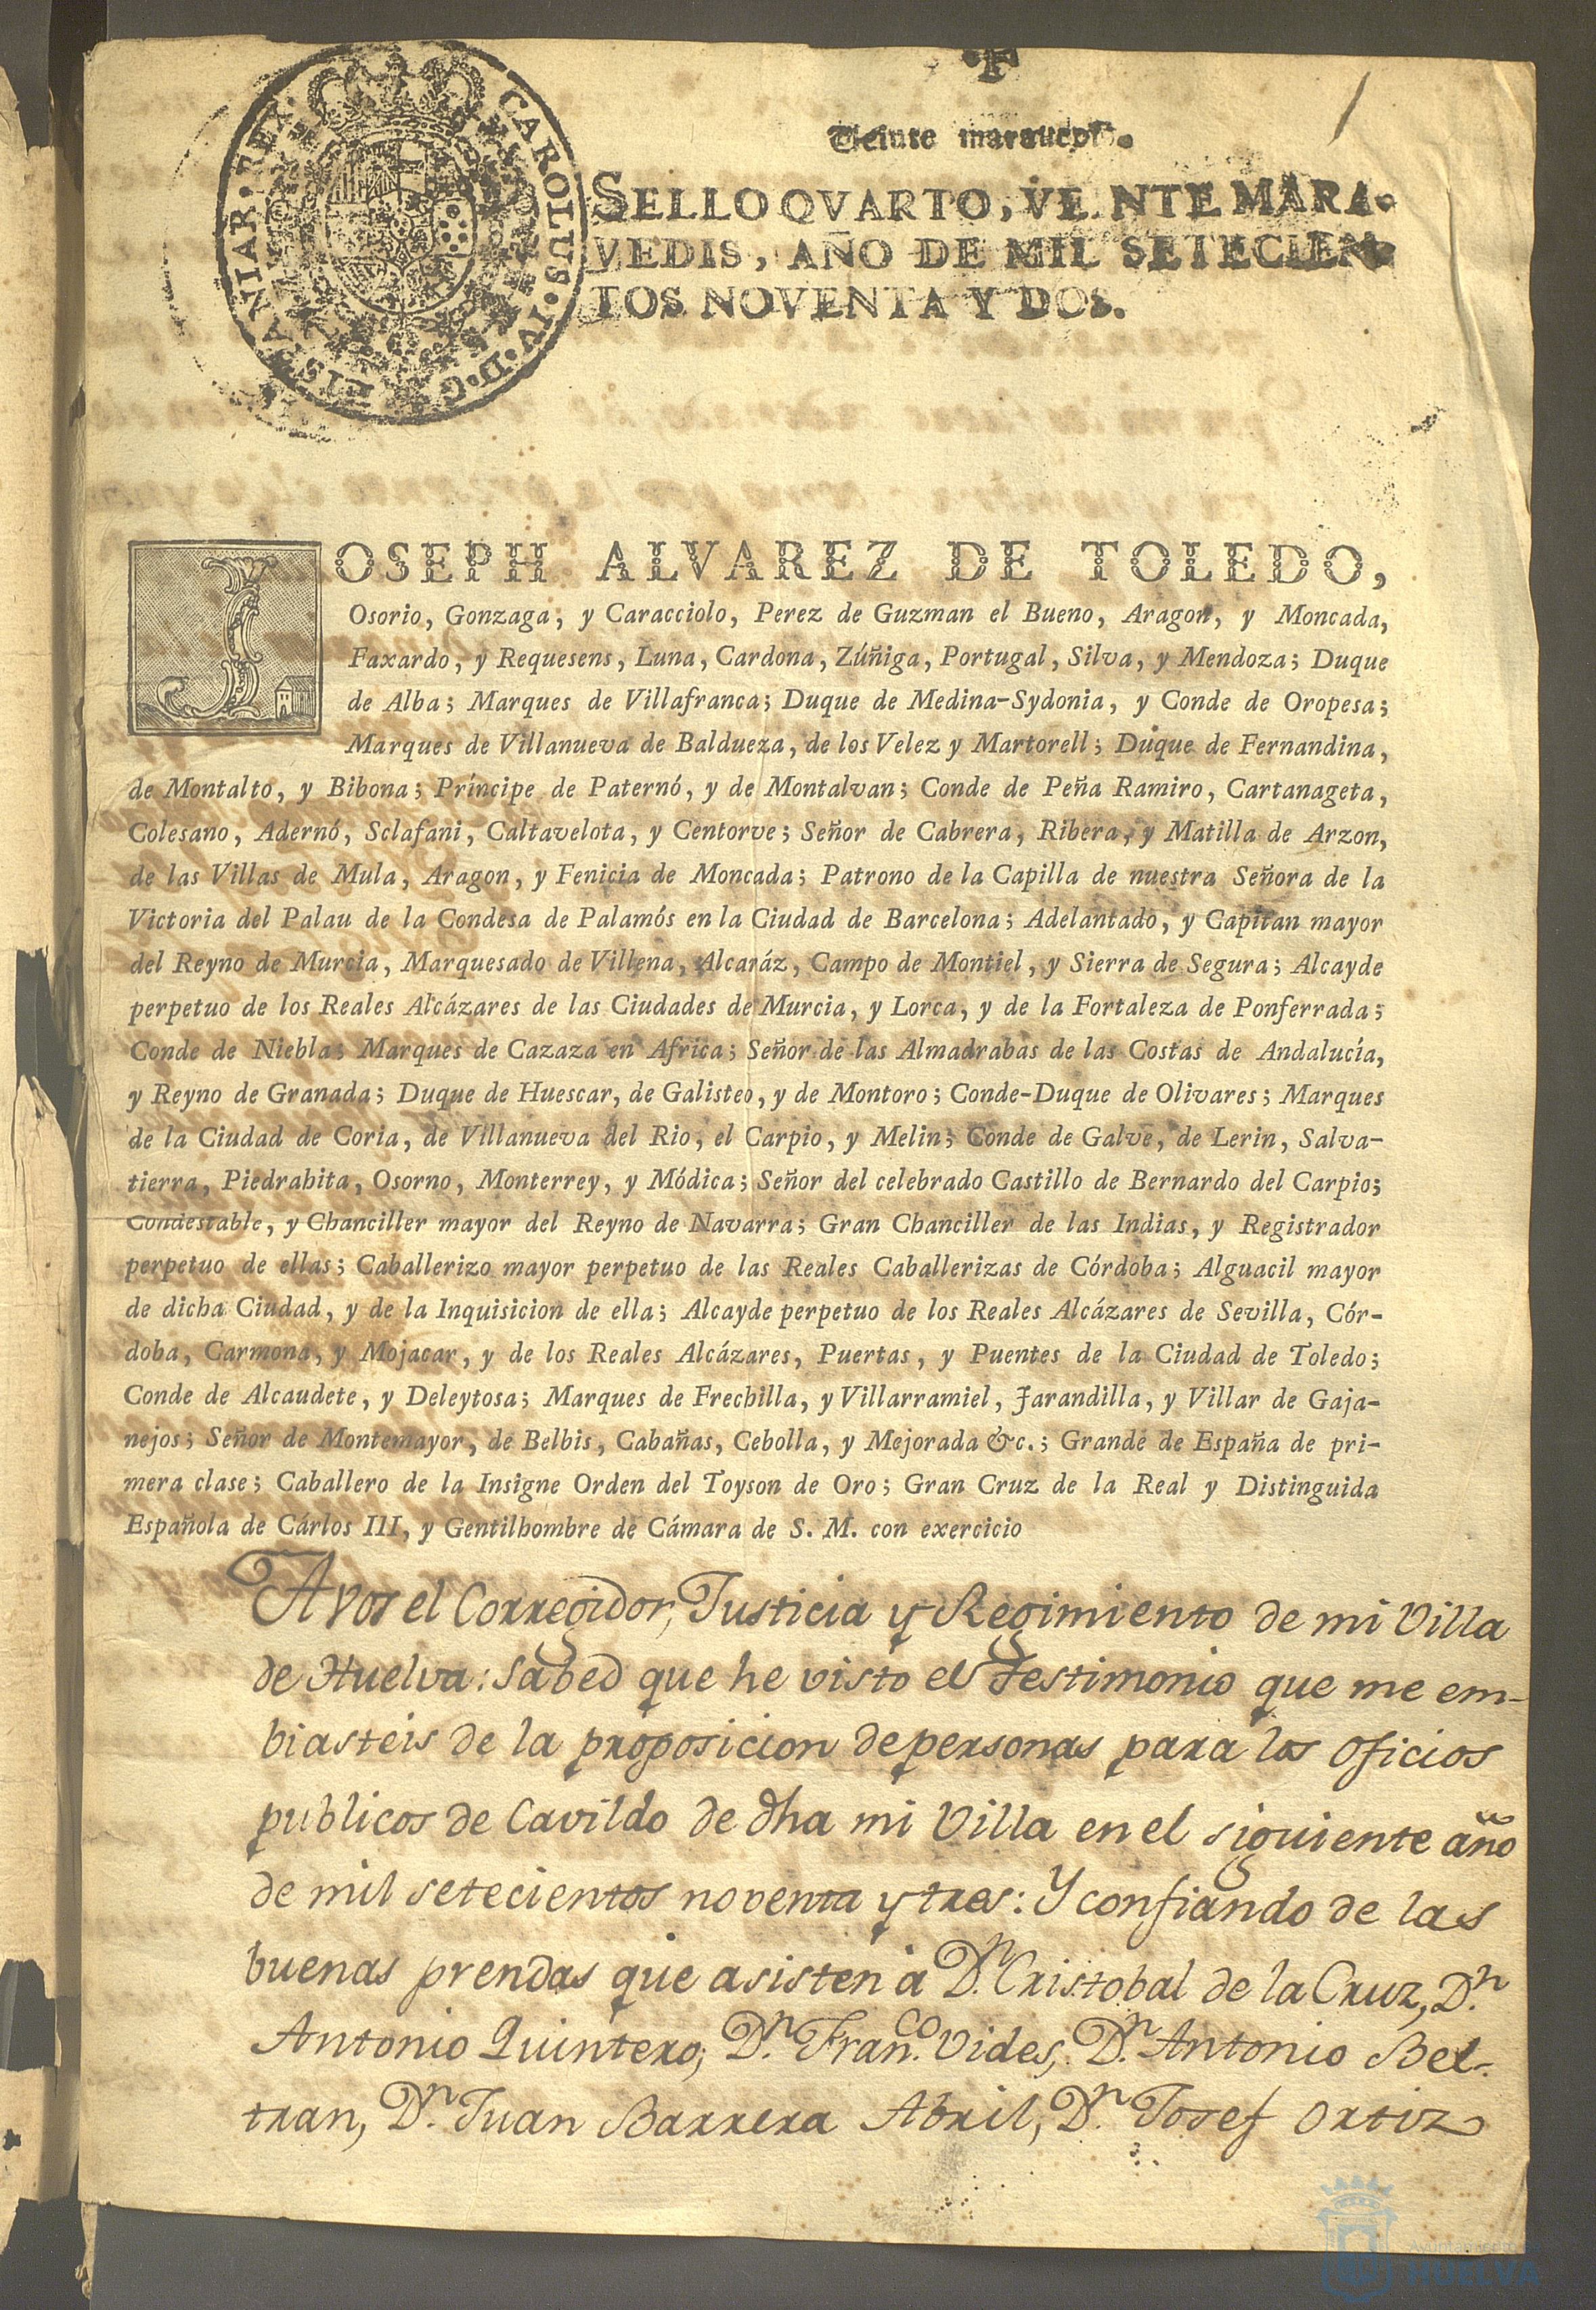 Veinte maravedis.
SELLO QVARTO, VEINTE MARA-
VEDIS, AÑO DE MIL SETECIEN-
TOS NOVENTA Y DOS.
CAROLUS · IV · D · G · HISPANIAR · REX ·
JOSEPH ALVAREZ DE TOLEDO,
Osorio, Gonzaga, y Caracciolo, Perez de Guzman el Bueno, Aragon, y Moncada,
Faxardo, y Requesens, Luna, Cardona, Zúñiga, Portugal, Silva, y Mendoza; Duque
de Alba; Marques de Villafranca; Duque de Medina-Sydonia, y Conde de Oropesa;
Marques de Villanueva de Baldueza, de los Velez y Martorell; Duque de Fernandina,
de Montalto, y Bibona; Príncipe de Paternó, y de Montalvan; Conde de Peña Ramiro, Cartanageta,
Colesano, Adernó, Sclafani, Caltavelota, y Centorve; Señor de Cabrera, Ribera, y Matilla de Arzon,
de las Villas de Mula, Aragon, y Fenicia de Moncada; Patrono de la Capilla de nuestra Señora de la
Victoria del Palau de la Condesa de Palamós en la Ciudad de Barcelona; Adelantado, y Capitan mayor
del Reyno de Murcia, Marquesado de Villena, Alcaráz, Campo de Montiel, y Sierra de Segura; Alcayde
perpetuo de los Reales Alcázares de las Ciudades de Murcia, y Lorca, y de la Fortaleza de Ponferrada;
Conde de Niebla; Marques de Cazaza en Africa; Señor de las Almadrabas de las Costas de Andalucía,
y Reyno de Granada; Duque de Huescar, de Galisteo, y de Montoro; Conde-Duque de Olivares; Marques
de la Ciudad de Coria, de Villanueva del Rio, el Carpio, y Melin; Conde de Galve, de Lerin, Salva-
tierra, Piedrahita, Osorno, Monterrey, y Módica; Señor del celebrado Castillo de Bernardo del Carpio;
Condestable, y Chanciller mayor del Reyno de Navarra; Gran Chanciller de las Indias, y Registrador
perpetuo de ellas; Caballerizo mayor perpetuo de las Reales Caballerizas de Córdoba; Alguacil mayor
de dicha Ciudad, y de la Inquisicion de ella; Alcayde perpetuo de los Reales Alcázares de Sevilla, Cór-
doba, Carmona, y Mojacar, y de los Reales Alcázares, Puertas, y Puentes de la Ciudad de Toledo;
Conde de Alcaudete, y Deleytosa; Marques de Frechilla, y Villarramiel, Jarandilla, y Villar de Gaja-
nejos; Señor de Montemayor, de Belbis, Cabañas, Cebolla, y Mejorada &c.; Grande de España de pri-
mera clase; Caballero de la Insigne Orden del Toyson de Oro; Gran Cruz de la Real y Distinguida
Española de Cárlos III, y Gentilhombre de Cámara de S. M. con exercicio
A vos el Corregidor, Justicia y Regimiento de mi Villa
de Huelva: Sabed que he visto el Testimonio que me em-
biasteis de la proposicion de personas para los oficios
publicos de Cavildo de dha mi Villa en el siguiente año
de mil setecientos noventa y tres: Y confiando de las
buenas prendas que asisten à Dn. Cristobal de la Cruz, Dn.
Antonio Quintero, Dn. Franco. Vides, Dn. Antonio Bel-
tran, Dn. Juan Barrera Abril, Dn. Josef Ortiz
Ayuntamiento
HUELVA